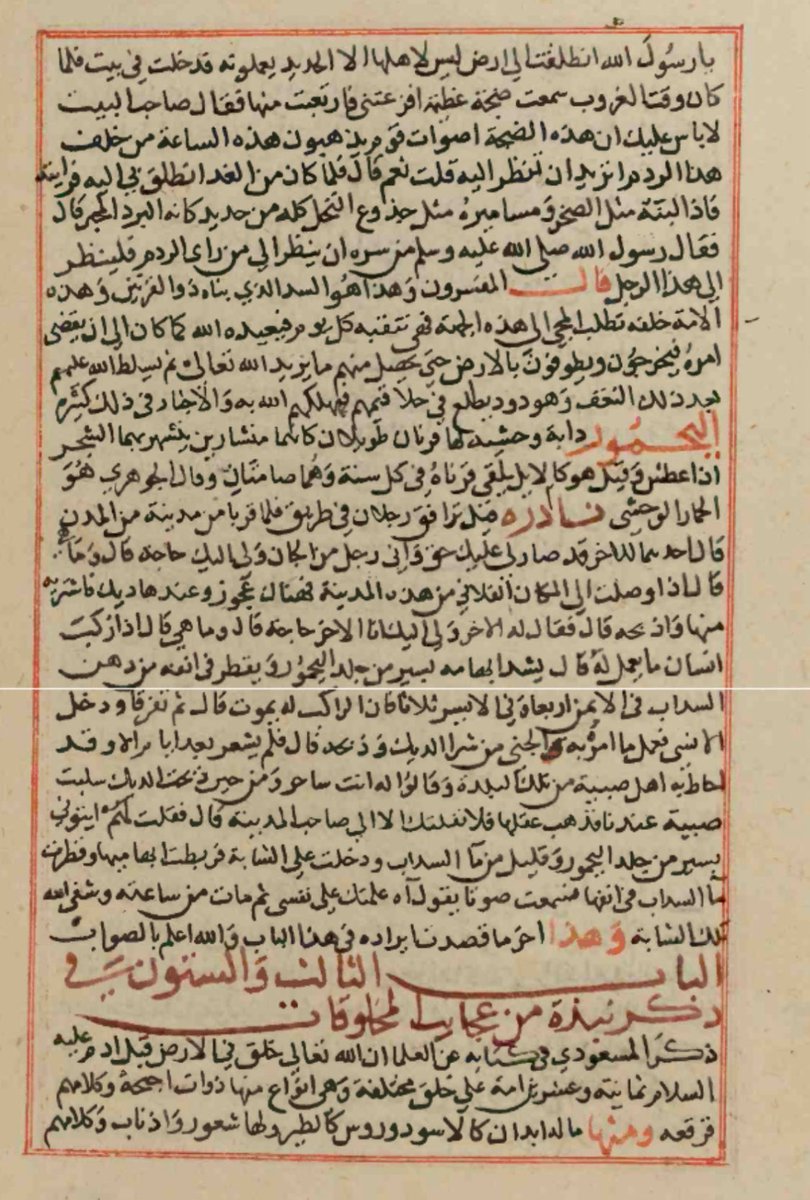 يا رسول الله انطلقت الى ارض ليس لاهلها الا الحديد يعملونه قد خلت في بيت فلما
كان وقت الغروب سمعت ضجة عظيمة افزعتني فارتعبت منها فقال صاحب البيت
لا باس عليك ان هذه الضجة اصوات قوم يذهبون هذه الساعة من خلف
هذا الردم اتريد ان تنظر اليه قلت نعم قال فلما كان من الغد انطلق بي اليه فرايته
فاذا لبنة مثل الصخر ومساميره مثل جذوع النخل كله من حديد كانه البرد المحبر قال
فقال رسول الله صلى الله عليه وسلم من سره ان ينظر الى من راى الردم فلينظر
الى هذا الرجل قالت المفسرون وهذا هو السد الذي بناه ذو القرنين وهذه
الامة خلفه تطلب المجي الى هذه الجهة فهي تنقبه كل يوم فيعيده الله كما كان الى ان يقضى
امره فيخرجون ويطوفون بالارض حتى يحصل منهم ما يريد الله تعالى ثم يسلط الله عليهم
بعد ذلك النغف وهو دود يطلع في حلاقتهم فيهلكهم الله به والاخبار في ذلك كثيرة
اليحمور دابة وحشية لها قرنان طويلان كانهما منشارين ينشر بهما الشجر
اذا عطش وقيل هو كالابل يلقي قرناه في كل سنة وهما صامتان وقال الجوهري هو
الحمار الوحشي نادره قيل ترافق رجلان في طريق فلما قربا من مدينة من المدن
قال احدهما للاخر قد صار لي عليك حق واني رجل من الجان ولي اليك حاجة قال وما
قال اذا وصلت الى المكان الفلاني من هذه المدينة فهناك عجوز وعندها ديك فاشتريه
منها واذبحه قال فقال له الاخر ولي اليك انا الاخر حاجة قال وما هي قال اذا ركبت
انسان ما يعمل له قال يشد ابهامه بسير من جلد اليحمور ويقطر في انفه من دهن
السداب في الايمن اربعة وفي الايسر ثلاثا فان الراكب له يموت قال ثم تفرقا ودخل
الانسي فعمل ما امره به الجني من شرا الديك وذبحه قال فلم يشعر بعد ايام الا وقد
احاط به اهل صبية من تلك البلدة وقالوا له انت ساحر ومن حين ذبحت الديك سلبت
صبية عندنا فذهب عقلها فلا نفلتك الا الى صاحب المدينة قال فقلت لهم ايتوني
بسير من جلد اليحمور وقليل من ما السداب ودخلت على الشابة فربطت ابهاميها وقطرت
ما السداب في انفها فسمعت صوتا يقول اه علمتك على نفسي ثم مات من ساعته وشفى الله
تلك الشابة وهذا اخر ما قصدنا ايراده في هذا الباب والله اعلم بالصواب
الباب الثالث والستون في
ذكر نبذة من عجايب المخلوقات
ذكر المسعودي في كتابه عن العلما ان الله تعالى خلق في الارض قبل ادم عليه
السلام ثمانية وعشرين امة على خلق مختلفة وهي انواع منها ذوات اجنحة وكلامهم
قرقعه ومنها ما له ابدان كالاسود وروس كالطير ولها شعور واذناب وكلامهم